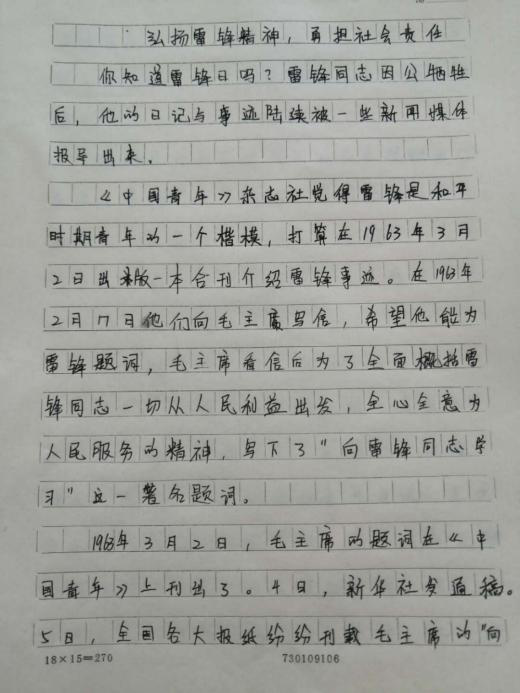 弘扬雷锋精神，勇担社会责任
你知道雷锋日吗？雷锋同志因公牺牲
后，他的日记与事迹陆续被一些新闻媒体
报导出来，
《中国青年》杂志社觉得雷锋是和平
时期青年的一个楷模，打算在1963年3月
2日出版一本合刊介绍雷锋事迹。在1963年
2月17日他们向毛主席写信，希望他能为
雷锋题词，毛主席看信后为了全面概括雷
锋同志一切从人民利益出发，全心全意为
人民服务的精神，写下了"向雷锋同志学
习"这一著名题词。
1963年3月2日，毛主席的题词在《中
国青年》上刊出了。4日，新华社发通稿。
5日，全国各大报纸纷纷刊载毛主席的"向
18×15=270 730109106